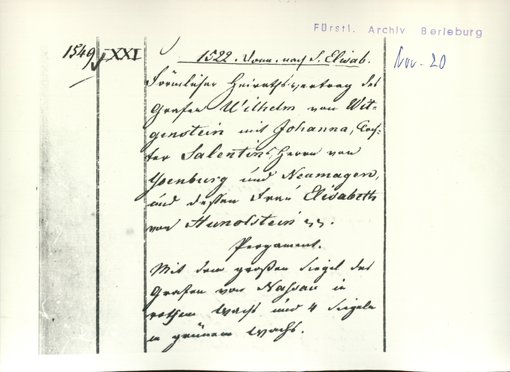 Fürstl. Archiv Berleburg
Nov. 20
1549 XXI
1522. Donn. nach S. Elisab.
Förmlicher Heirathsvertrag des
Grafen Wilhelm von Wit-
genstein mit Johanna, Toch-
ter Salentins Herrn von
Ysenburg und Neumagen,
und dessen Frau Elisabeth
von Hunolstein
Pergament.
Mit dem großen Siegel des
Grafen von Nassau in
rothem Wachs und 4 Siegeln
in grünem Wachs.